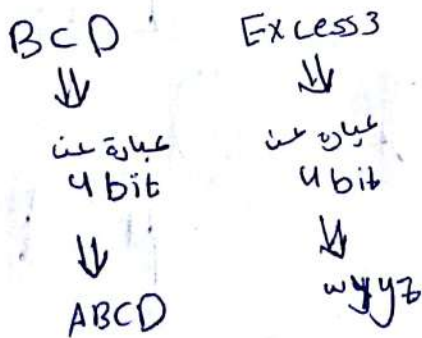 BCD
⇓
عبارة عن
4 bit
⇓
ABCD
Excess3
⇓
عبارة عن
4 bit
⇓
wyyz